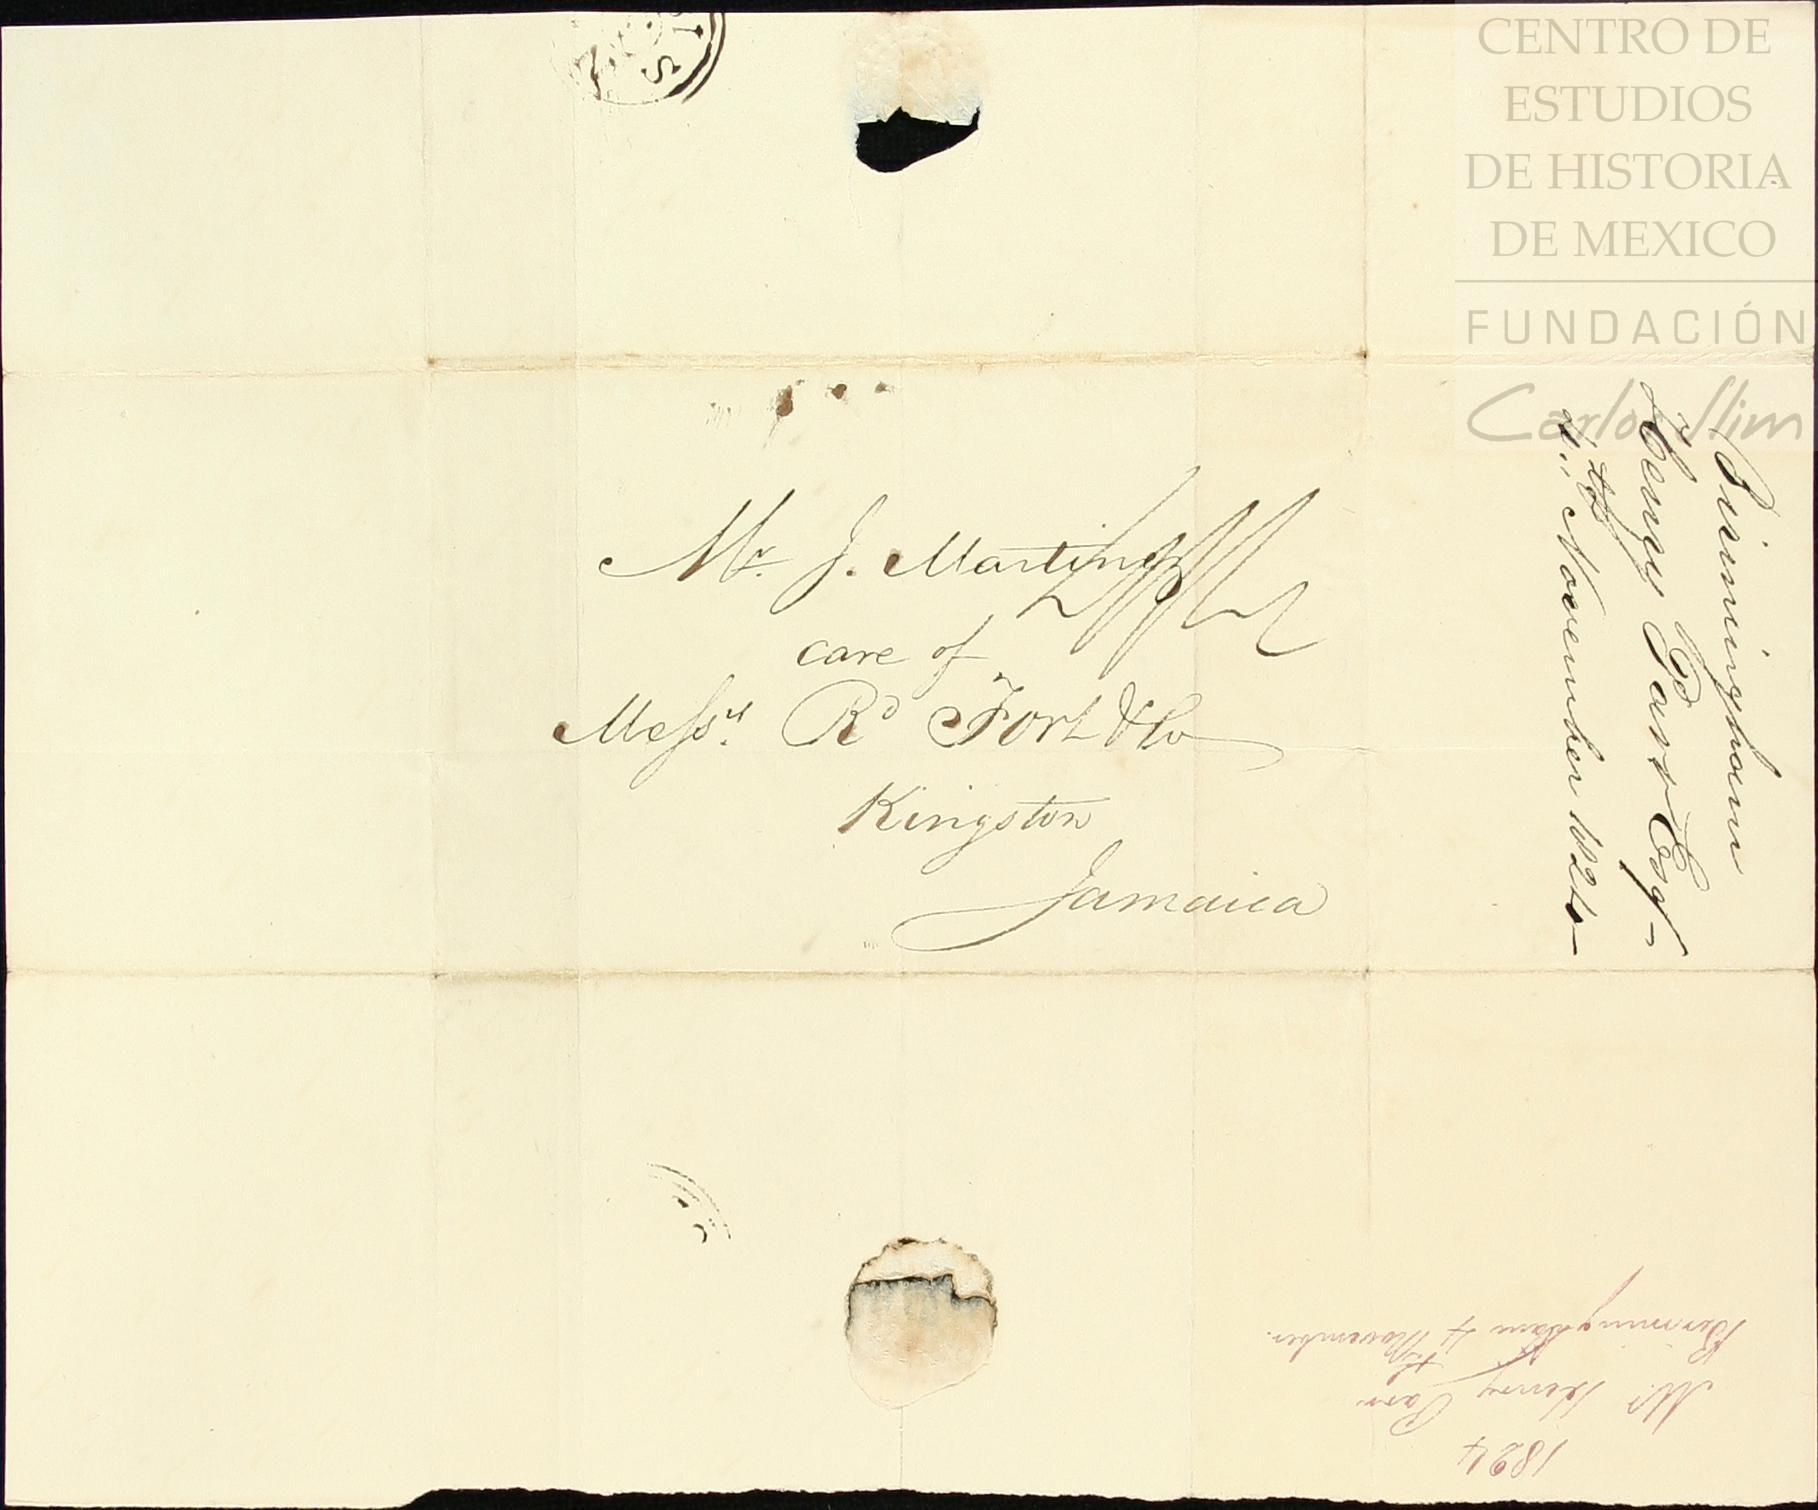 CENTRO DE
ESTUDIOS
DE HISTORIA
DE MEXICO
FUNDACIÓN
Carlos Slim
IS
Mr. J. Martinez
care of
Messrs. Rd Fort & Co
Kingston
Jamaica
Birmingham
Henry Parr Esqr
4th November 1824
1824
Mr. Henry Parr
Birmingham 4th November.